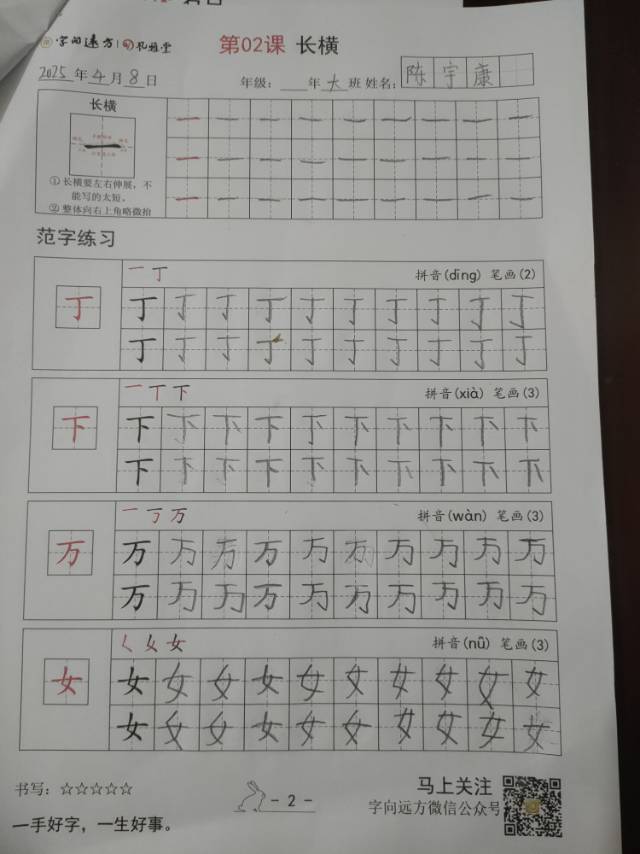 字向遠方 礼雅堂 第02课 长横
2025年4月8日 年级：年大班 姓名：陈宇康
长横
①长横要左右伸展，不
能写的太短。
②整体向右上角略微抬
范字练习
一丁 拼音(dīng) 笔画(2)
丁 丁丁丁丁丁丁丁丁丁丁
丁丁丁丁丁丁丁丁丁丁
一丅下 拼音(xià) 笔画(3)
下 下下下下下下下下下下
下下下下下下下下下下
一丂万 拼音(wàn) 笔画(3)
万 万万万万万万万万万万
万万万万万万万万万万
女 拼音(nǚ) 笔画(3)
女 女女女女女女女女女女
女女女女女女女女女女
书写：☆☆☆☆☆ 马上关注
- 2 - 字向远方微信公众号
一手好字，一生好事。